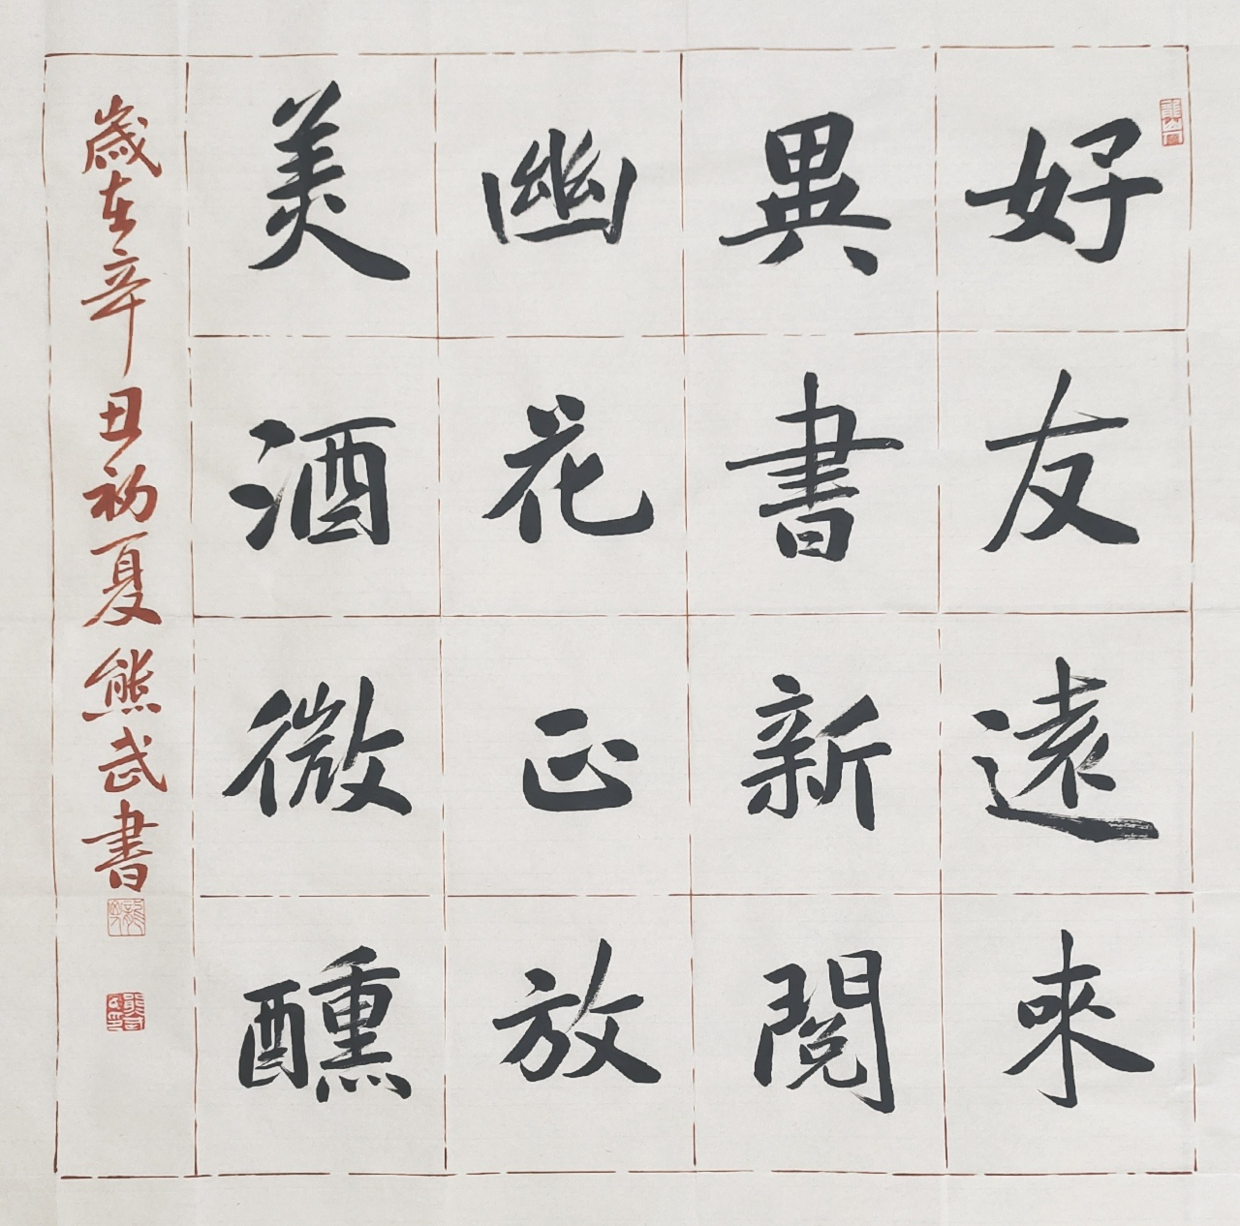 好友遠來
異書新閱
幽花正放
美酒微醺
歲在辛丑初夏熊武書